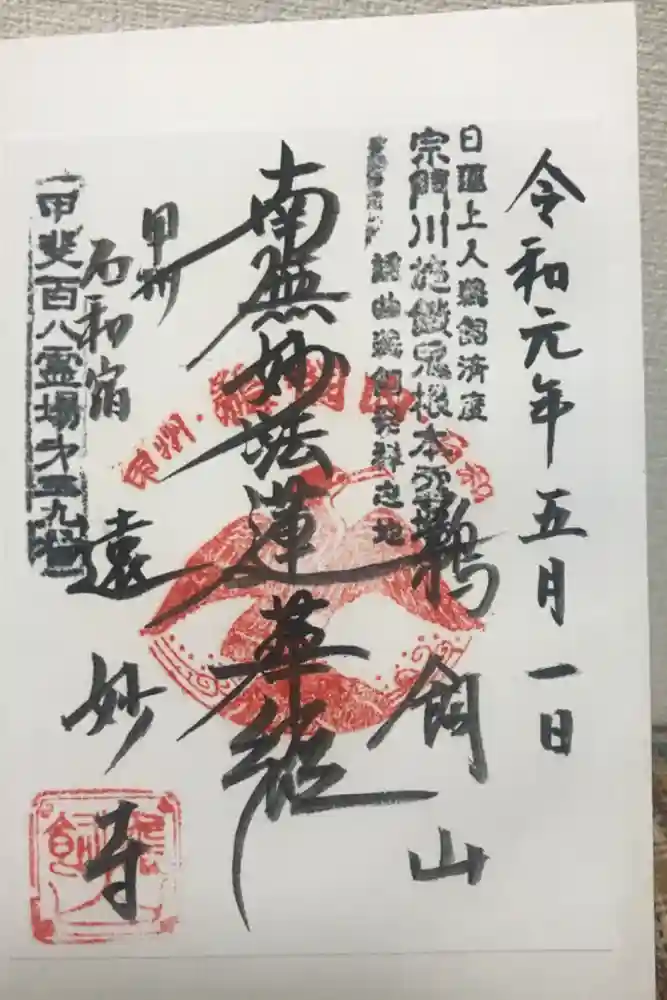 令和元年五月一日
日蓮上人鵜飼済度
宗門川施餓鬼根本霊場
謡曲鵜飼発祥之地
鵜飼山
南無妙法蓮華経
甲州
石和宿
遠妙寺
甲斐百八霊場第九五番
甲州・鵜飼山